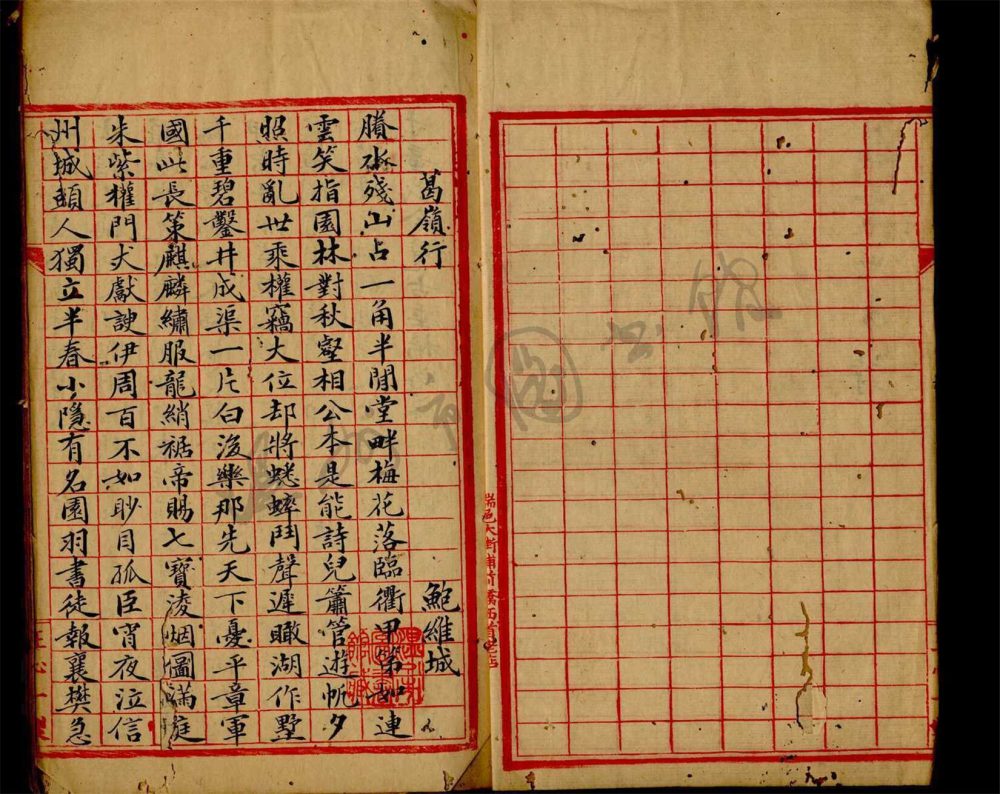 葛嶺行
鮑維城
賸水殘山占一角半閒堂畔梅花落臨衢甲第如連
雲笑指園林對秋壑相公本是能詩兒簫管遊帆夕
照時亂世乘權竊大位却將蟋蟀鬥聲遲瞰湖作墅
千重碧鑿井成渠一片白後樂那先天下憂平章軍
國此長策麒麟繡服龍綃裾帝賜七寶淩烟圖滿庭
朱紫權門犬獻諛伊周百不如眇目孤臣宵夜泣信
州城頹人獨立半春小隱有名園羽書徒報襄樊急